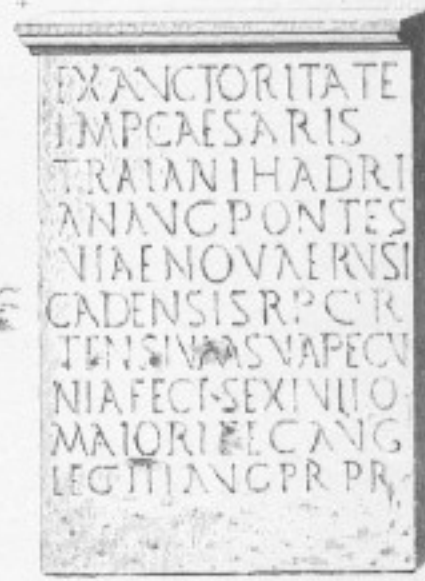 EX AVCTORITATE
IMP CAESARIS
TRAIANI HADRI
AN AVG PONTES
VIAE NOVAE RVSI
CADENSIS R P CIR
TENSIVM SVA PECV
NIA FECIT SEX IVLIO
MAIORI LEG AVG
LEG III AVG PR PR